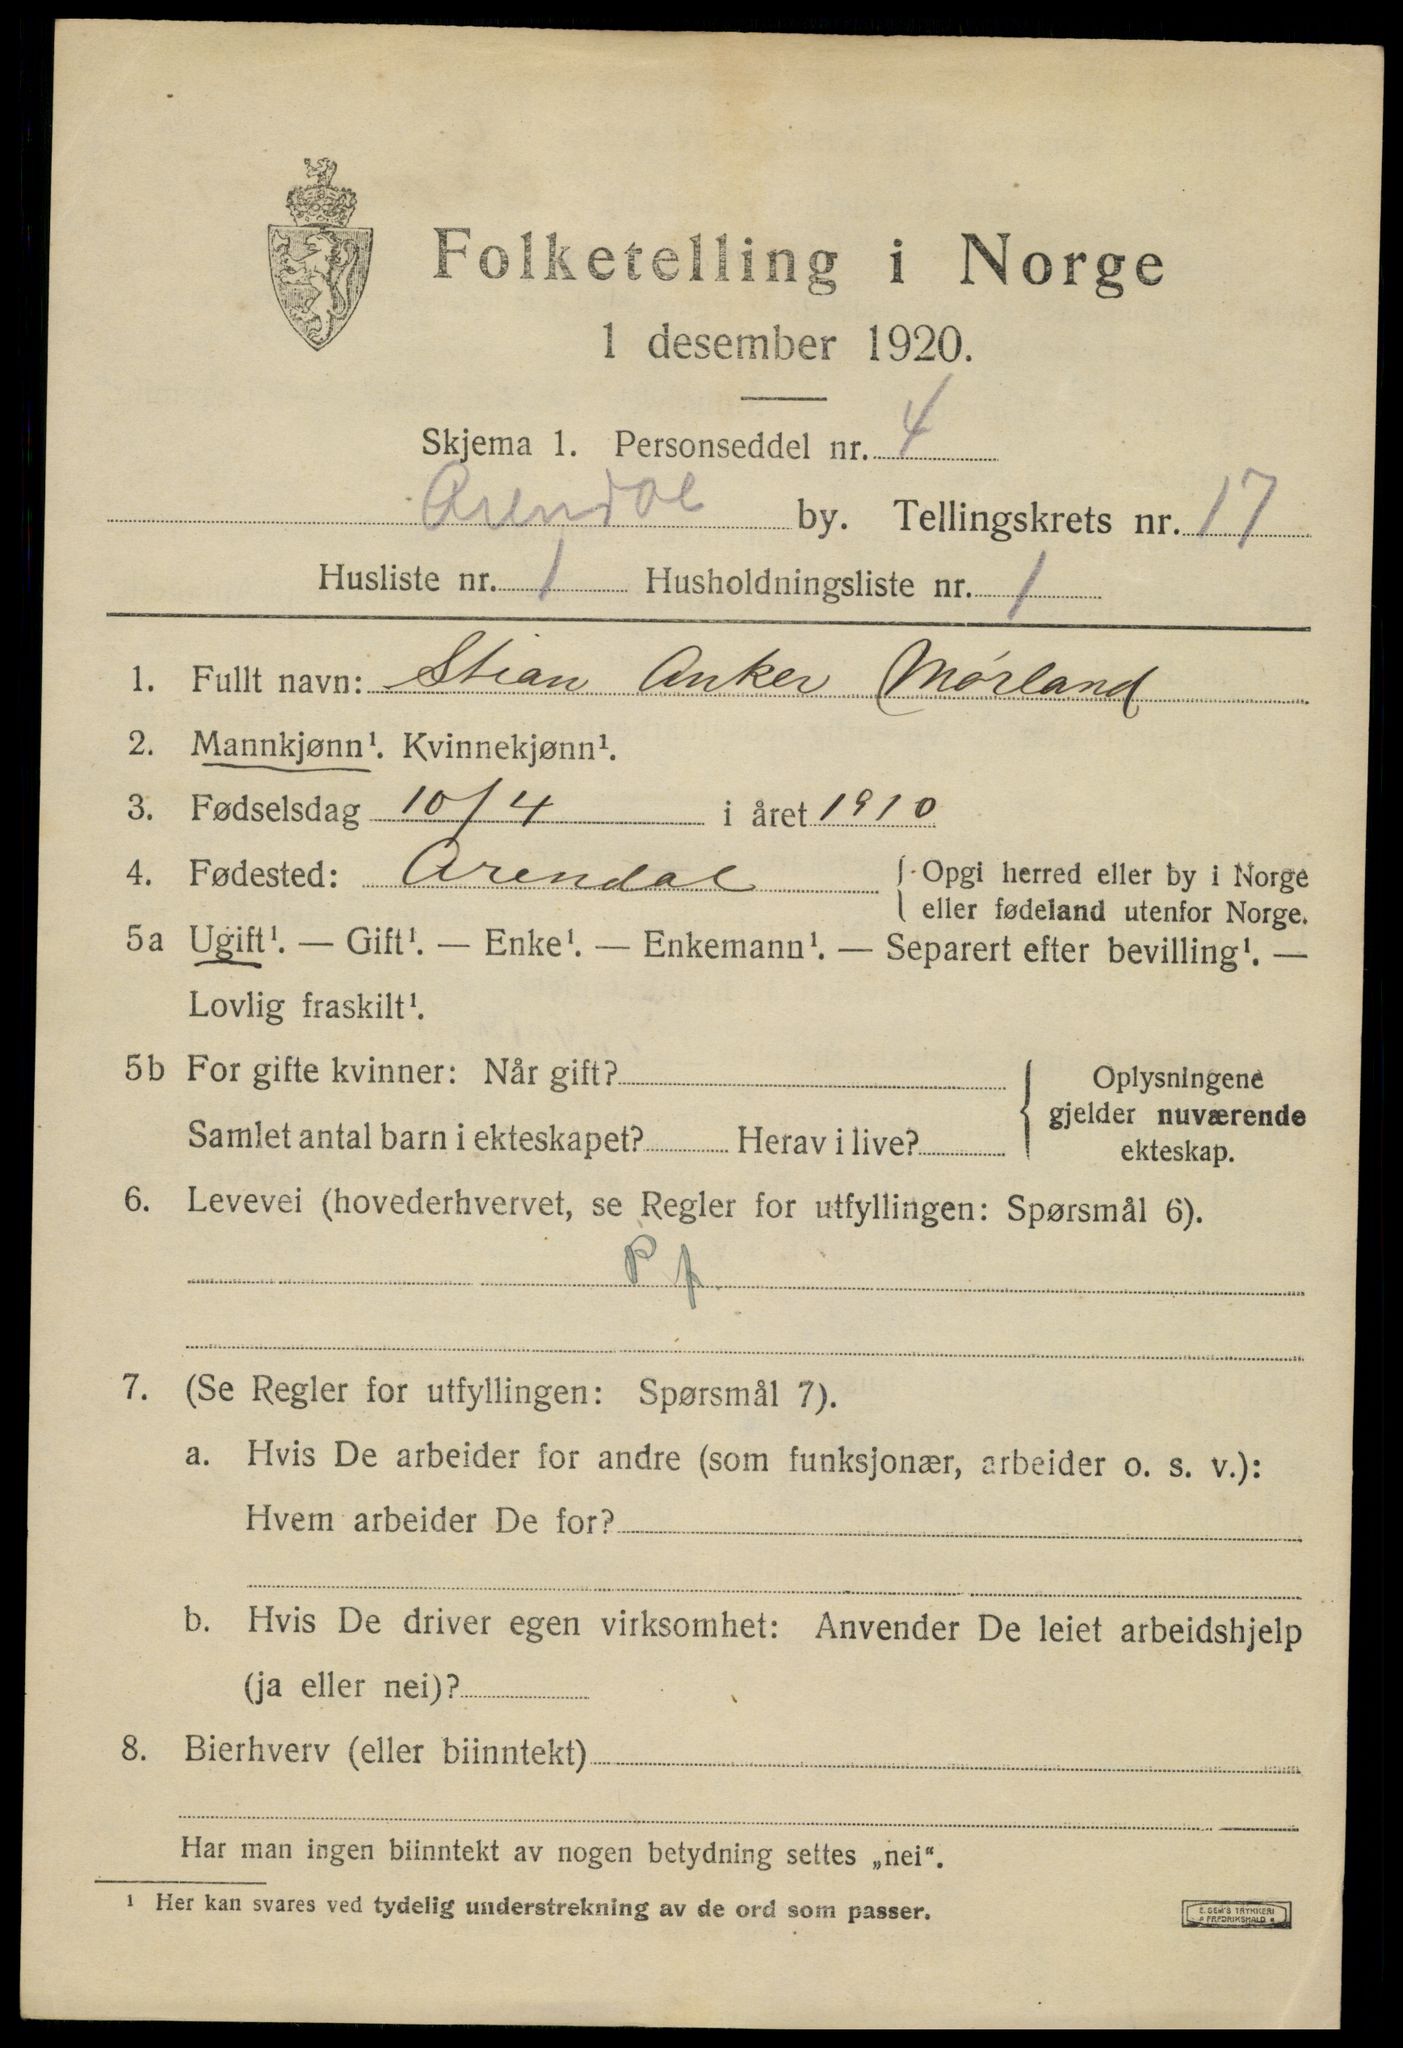 Folketelling i Norge
1 desember 1920.
Skjema 1. Personseddel nr. 4
Arendal by. Tellingskrets nr. 17
Husliste nr. 1 Husholdningsliste nr. 1
1. Fullt navn: Stian Anker Mørland
2. Mannkjønn¹. Kvinnekjønn¹.
3. Fødselsdag 10/4 i året 1910
4. Fødested: Arendal { Opgi herred eller by i Norge
eller fødeland utenfor Norge.
5a Ugift¹. — Gift¹. — Enke¹. — Enkemann¹. — Separert efter bevilling¹. —
Lovlig fraskilt¹.
5b For gifte kvinner: Når gift?
Samlet antal barn i ekteskapet? Herav i live?
{ Oplysningene
gjelder nuværende
ekteskap.
6. Levevei (hovederhvervet, se Regler for utfyllingen: Spørsmål 6).
7. (Se Regler for utfyllingen: Spørsmål 7).
a. Hvis De arbeider for andre (som funksjonær, arbeider o. s. v.):
Hvem arbeider De for?
b. Hvis De driver egen virksomhet: Anvender De leiet arbeidshjelp
(ja eller nei)?
8. Bierhverv (eller biinntekt)
Har man ingen biinntekt av nogen betydning settes „nei“.
¹ Her kan svares ved tydelig understrekning av de ord som passer.
E. SEM'S TRYKKERI
FREDRIKSHALD